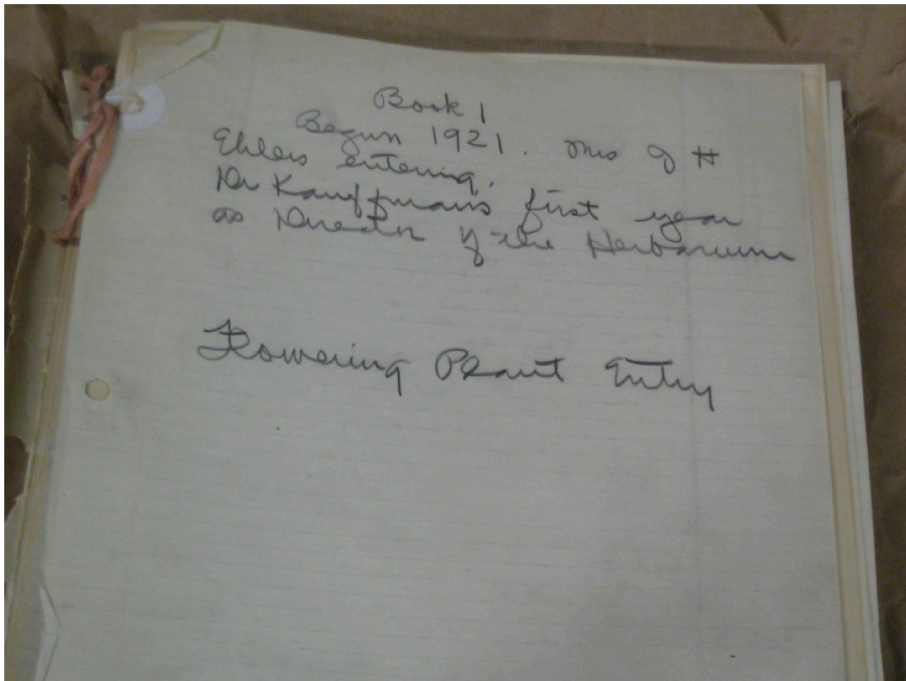 Book 1
Begun 1921. Mrs J H
Ehlers entering.
Dr Kauffman's first year
as Director of the Herbarium
Flowering Plant Entry